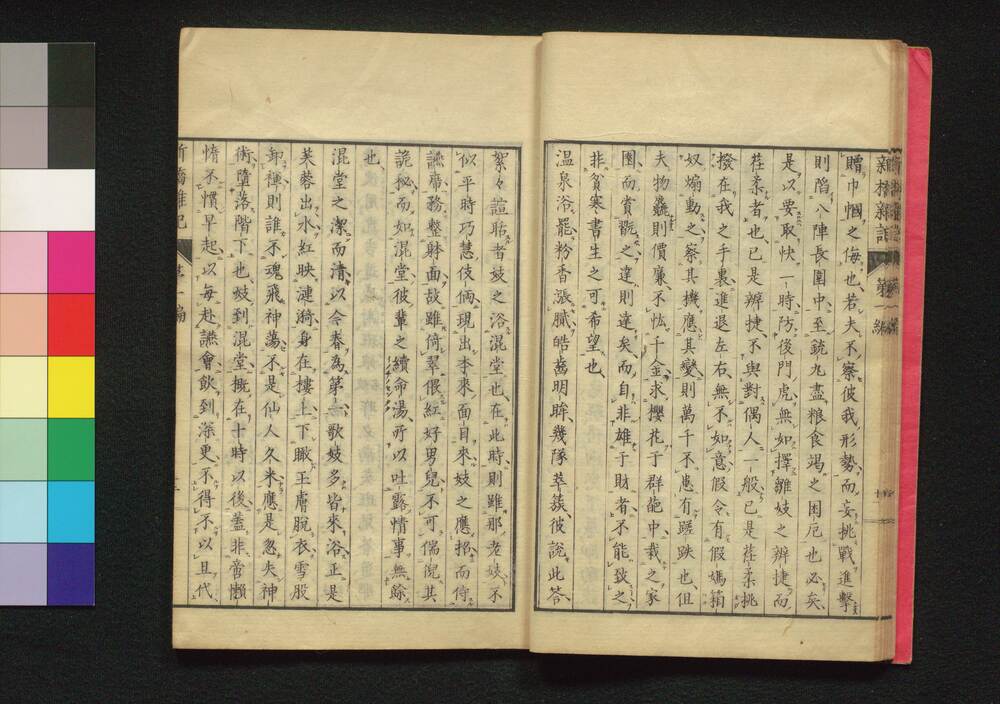 新橋雜記 第一編
贈巾幗之侮也、若夫不察彼我形勢、而妄挑戰進擊
則陷八陣長圍中、至銃丸盡粮食竭之困厄也必矣、
是以要取快一時、防後門虎、無如擇雛妓之辨捷而
荏柔者也、已是辨捷不與對偶人一般、已是荏柔挑
撥在我之手裏、進退左右、無不如意、假令有假媽箱
奴煽動之、察其機應其變、則萬千不患有蹉跌也、但
夫物麤則價廉、不怯千金、求櫻花于群葩中、栽之家
園而賞翫之、達則達矣、而自非雄于財者、不能致之
非貧寒書生之可希望也、
温泉浴罷粉香漲膩、皓齒明眸、幾隊萃簇、彼說此答
絮々諠聒者、妓之浴混堂也、在此時則雖那老妓、不
似平時巧慧伎倆、現出本來面目來、妓之應招而侍
讌席、務整躬面、故雖倚翠偎紅好男兒、不可偵倪其
詭秘、而如混堂、彼輩之續命湯、所以吐露情事無餘
也、
混堂之潔而清、以今春為第一、歌妓多皆來浴、正是
芙蓉出水、紅映漣漪、身在樓上、下瞰玉膚脫衣、雪股
卸褌、則誰不魂飛神蕩、不是仙人久米、應是忽失神
術、墮落階下也、妓到混堂、概在十時以後、蓋非啻懶
惰不慣早起、以每赴讌會、飲到深更、不得不以且代
新橋雜記 第一編